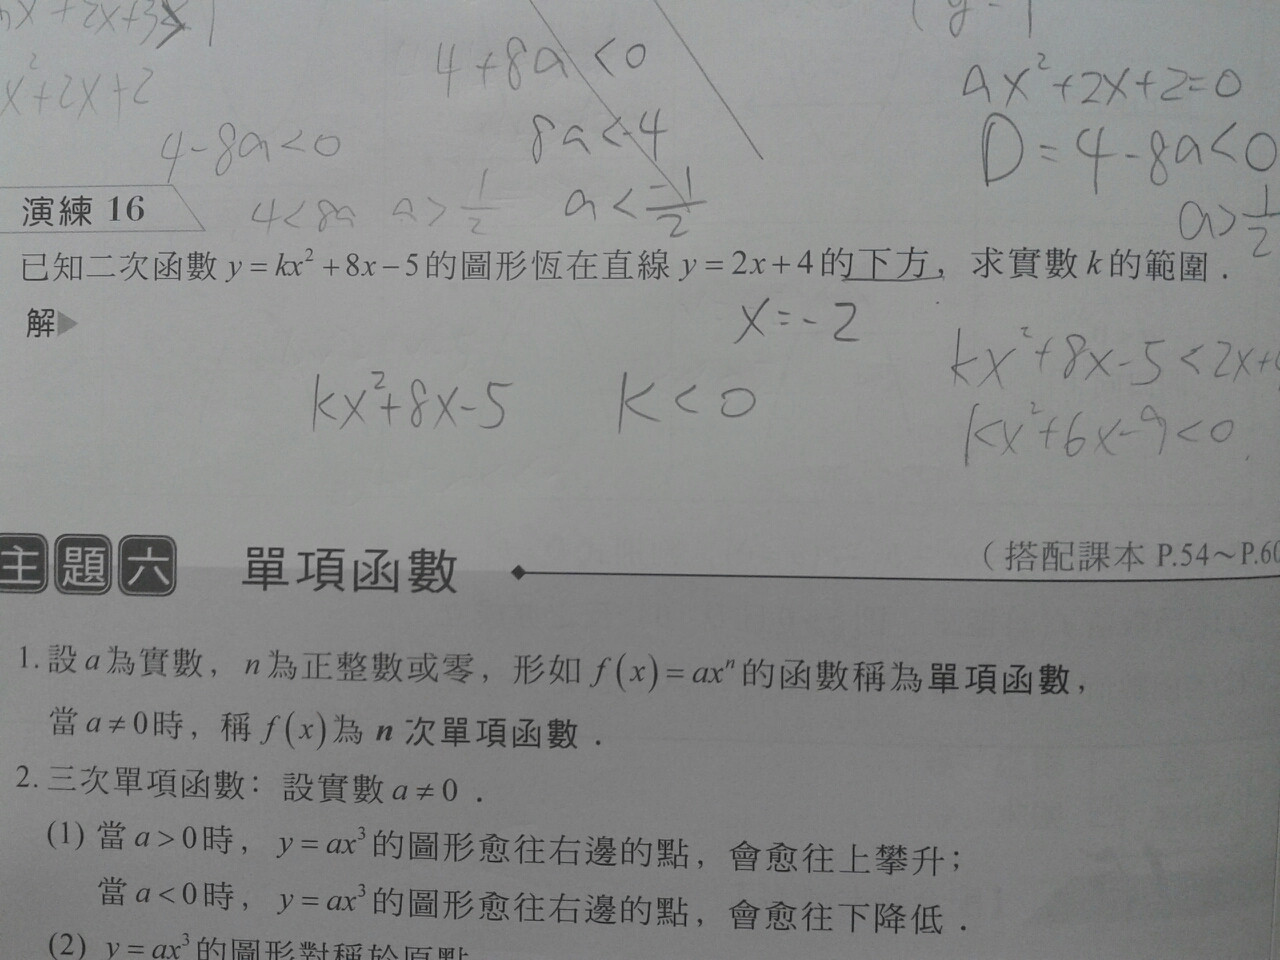 x²+2x+2
4+8a<0
8a<-4
a<-1/2
4-8a<0
4<8a a>1/2
ax²+2x+2=0
D=4-8a<0
a>1/2
演練 16
已知二次函數 y=kx²+8x-5的圖形恆在直線 y=2x+4的下方，求實數k的範圍．
解▶
x=-2
kx²+8x-5
k<0
kx²+8x-5<2x+
kx²+6x-9<0
主題六 單項函數
（搭配課本 P.54～P.60
1. 設a為實數，n為正整數或零，形如 f(x)=axⁿ的函數稱為單項函數，
當a≠0時，稱 f(x)為 n 次單項函數．
2. 三次單項函數：設實數a≠0．
(1) 當a>0時，y=ax³的圖形愈往右邊的點，會愈往上攀升；
當a<0時，y=ax³的圖形愈往右邊的點，會愈往下降低．
(2) y=ax³的圖形對稱於原點